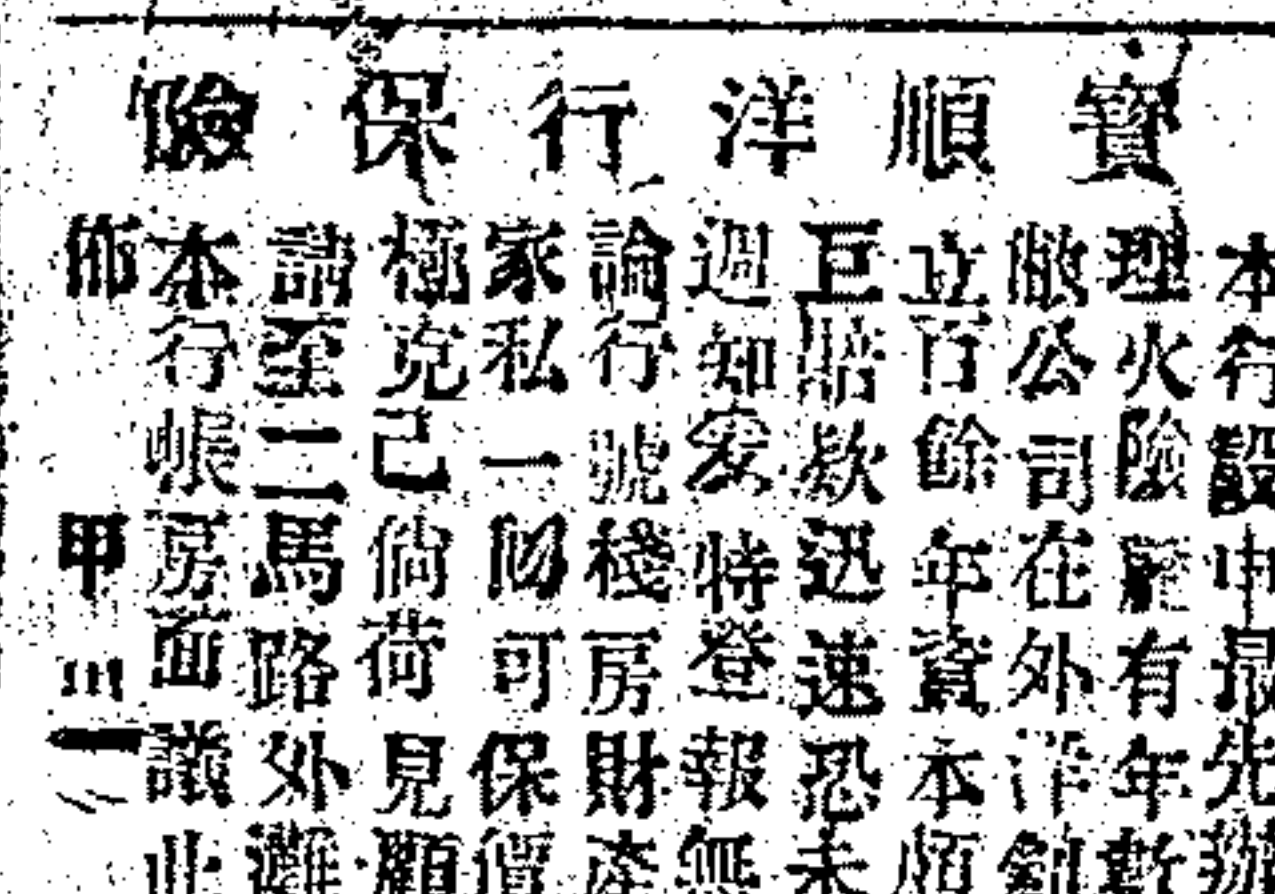 寶順洋行保險
本行設申最先辦
理火險歷有年數
敝公司在外洋創
立百餘年資本
巨賠款迅速恐未
週知爰特登報無
論行號棧房財產
家私一切可保價
極克己倘荷見顧
請至二馬路外灘
本行帳房面議此
佈 甲